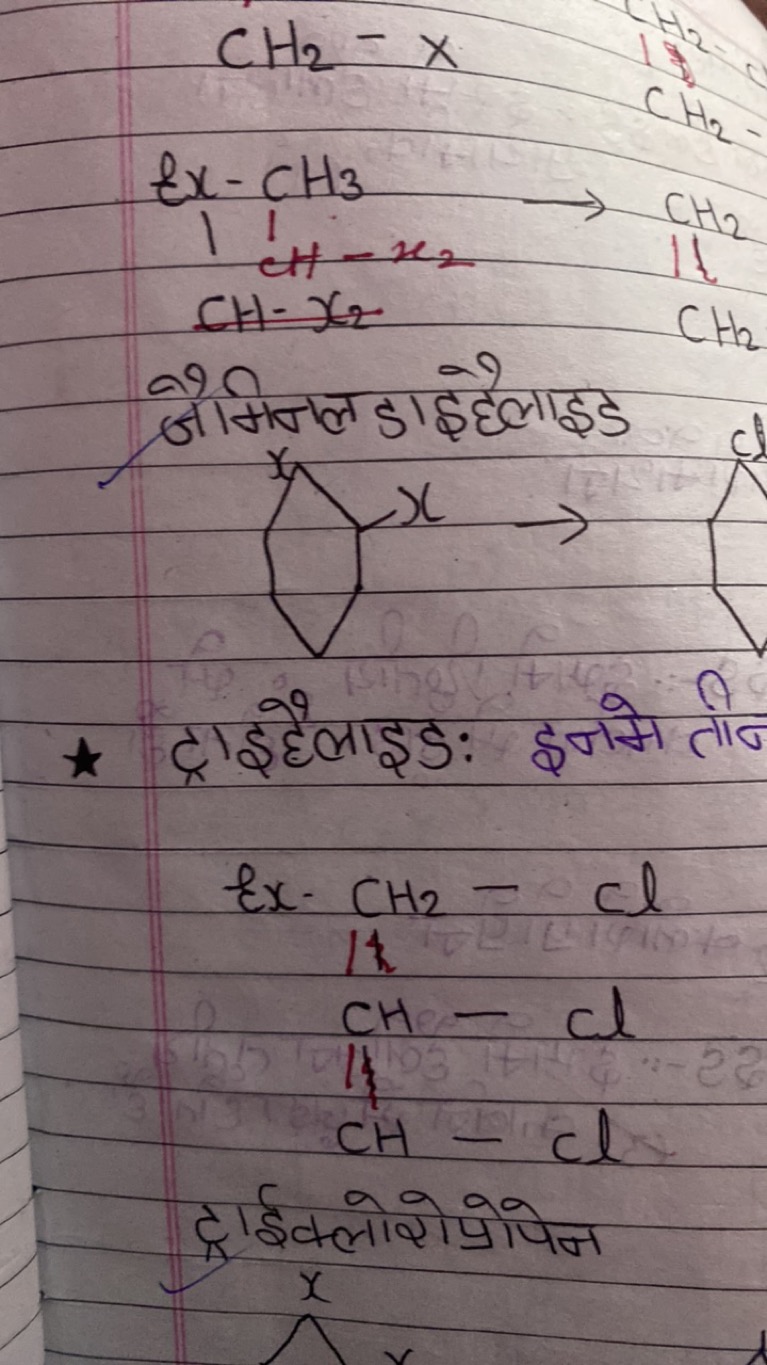 CH2 - x
CH2 -
CH2 -
Ex - CH3 → CH2
CH - x2
CH - X2
CH2
जैमिनल डाईहैलाइड
X
X → Cl
★ ट्राइहैलाइड: इनमे तीन
Ex - CH2 - Cl
CH - Cl
CH - Cl
ट्राईक्लोरोप्रोपेन
X
X